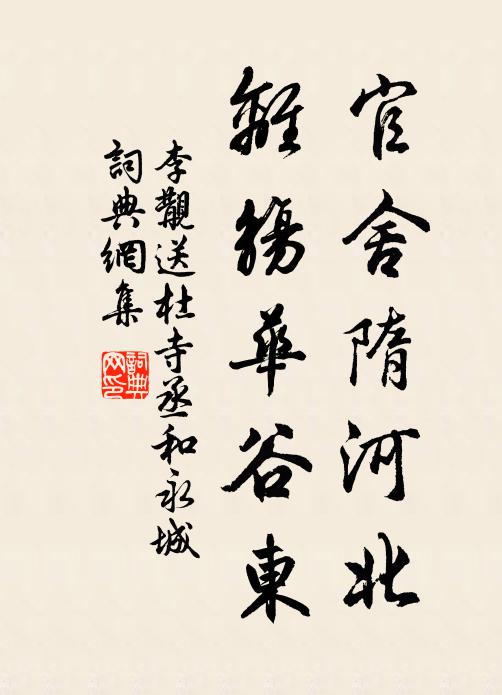 官舍隋河北
離觴華谷東
李覯送杜寺丞和永城
詞典網集
詞典網印